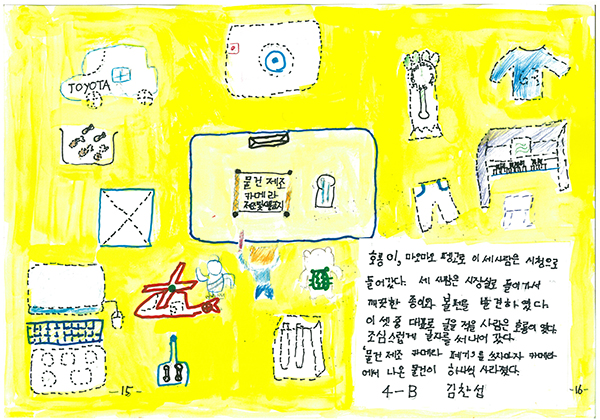 TOYOTA
물건 제조
카메라
호룡이, 마모마모, 펭고로 이 세사람은 시청으로
들어갔다. 세 사람은 시장실로 들어가서
깨끗한 종이와 볼펜을 발견하였다.
이 셋 중 대표로 글을 적을 사람은 호룡이 였다.
조심스럽게 글자를 써내어 갔다.
'물건 제조 카메라 폐기'를 쓰자마자 카메라
에서 나온 물건이 하나씩 사라졌다.
4-B 김찬섭
-15-
-16-